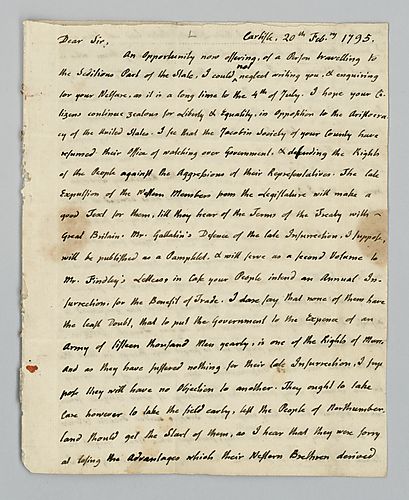 Carlisle, 20th Feb.ry 1795.
Dear Sir,
An Opportunity now offering, of a Person travelling to
the Seditious Part of the State, I could not neglect writing you, & enquiring
for your Welfare, as it is a long time to the 4th of July. I hope your Ci-
tizens continue zealous for Liberty & Equality, in Opposition to the Aristocra-
cy of the United States. I see that the Jacobin Society of your County have
resumed their Office of watching over Government, & defending the Rights
of the People against the Aggressions of their Representatives. The late
Expulsion of the Western Members from the Legislature will make a
good Text for them, till they hear of the Terms of the Treaty with
Great Britain. Mr. Gallatin's Defence of the late Insurrection, I suppose,
will be published as a Pamphlet, & will serve as a second Volume to
Mr. Findley's Letters, in Case your People intend an Annual In-
surrection, for the Benefit of Trade. I dare say, that none of them have
the least Doubt, that to put the Government to the Expence of an
Army of fifteen thousand Men yearly, is one of the Rights of Man.
And as they have suffered nothing for their late Insurrection, I sup-
pose they will have no Objection to another. They ought to take
Care however to take the field early, lest the People of Northumber-
land should get the Start of them, as I hear that they were sorry
at losing the Advantages which their Western Brethren derived